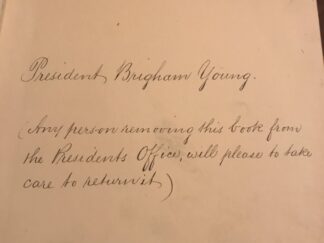 President Brigham Young.
(Any person removing this book from
the Presidents Office, will please to take
care to return it)